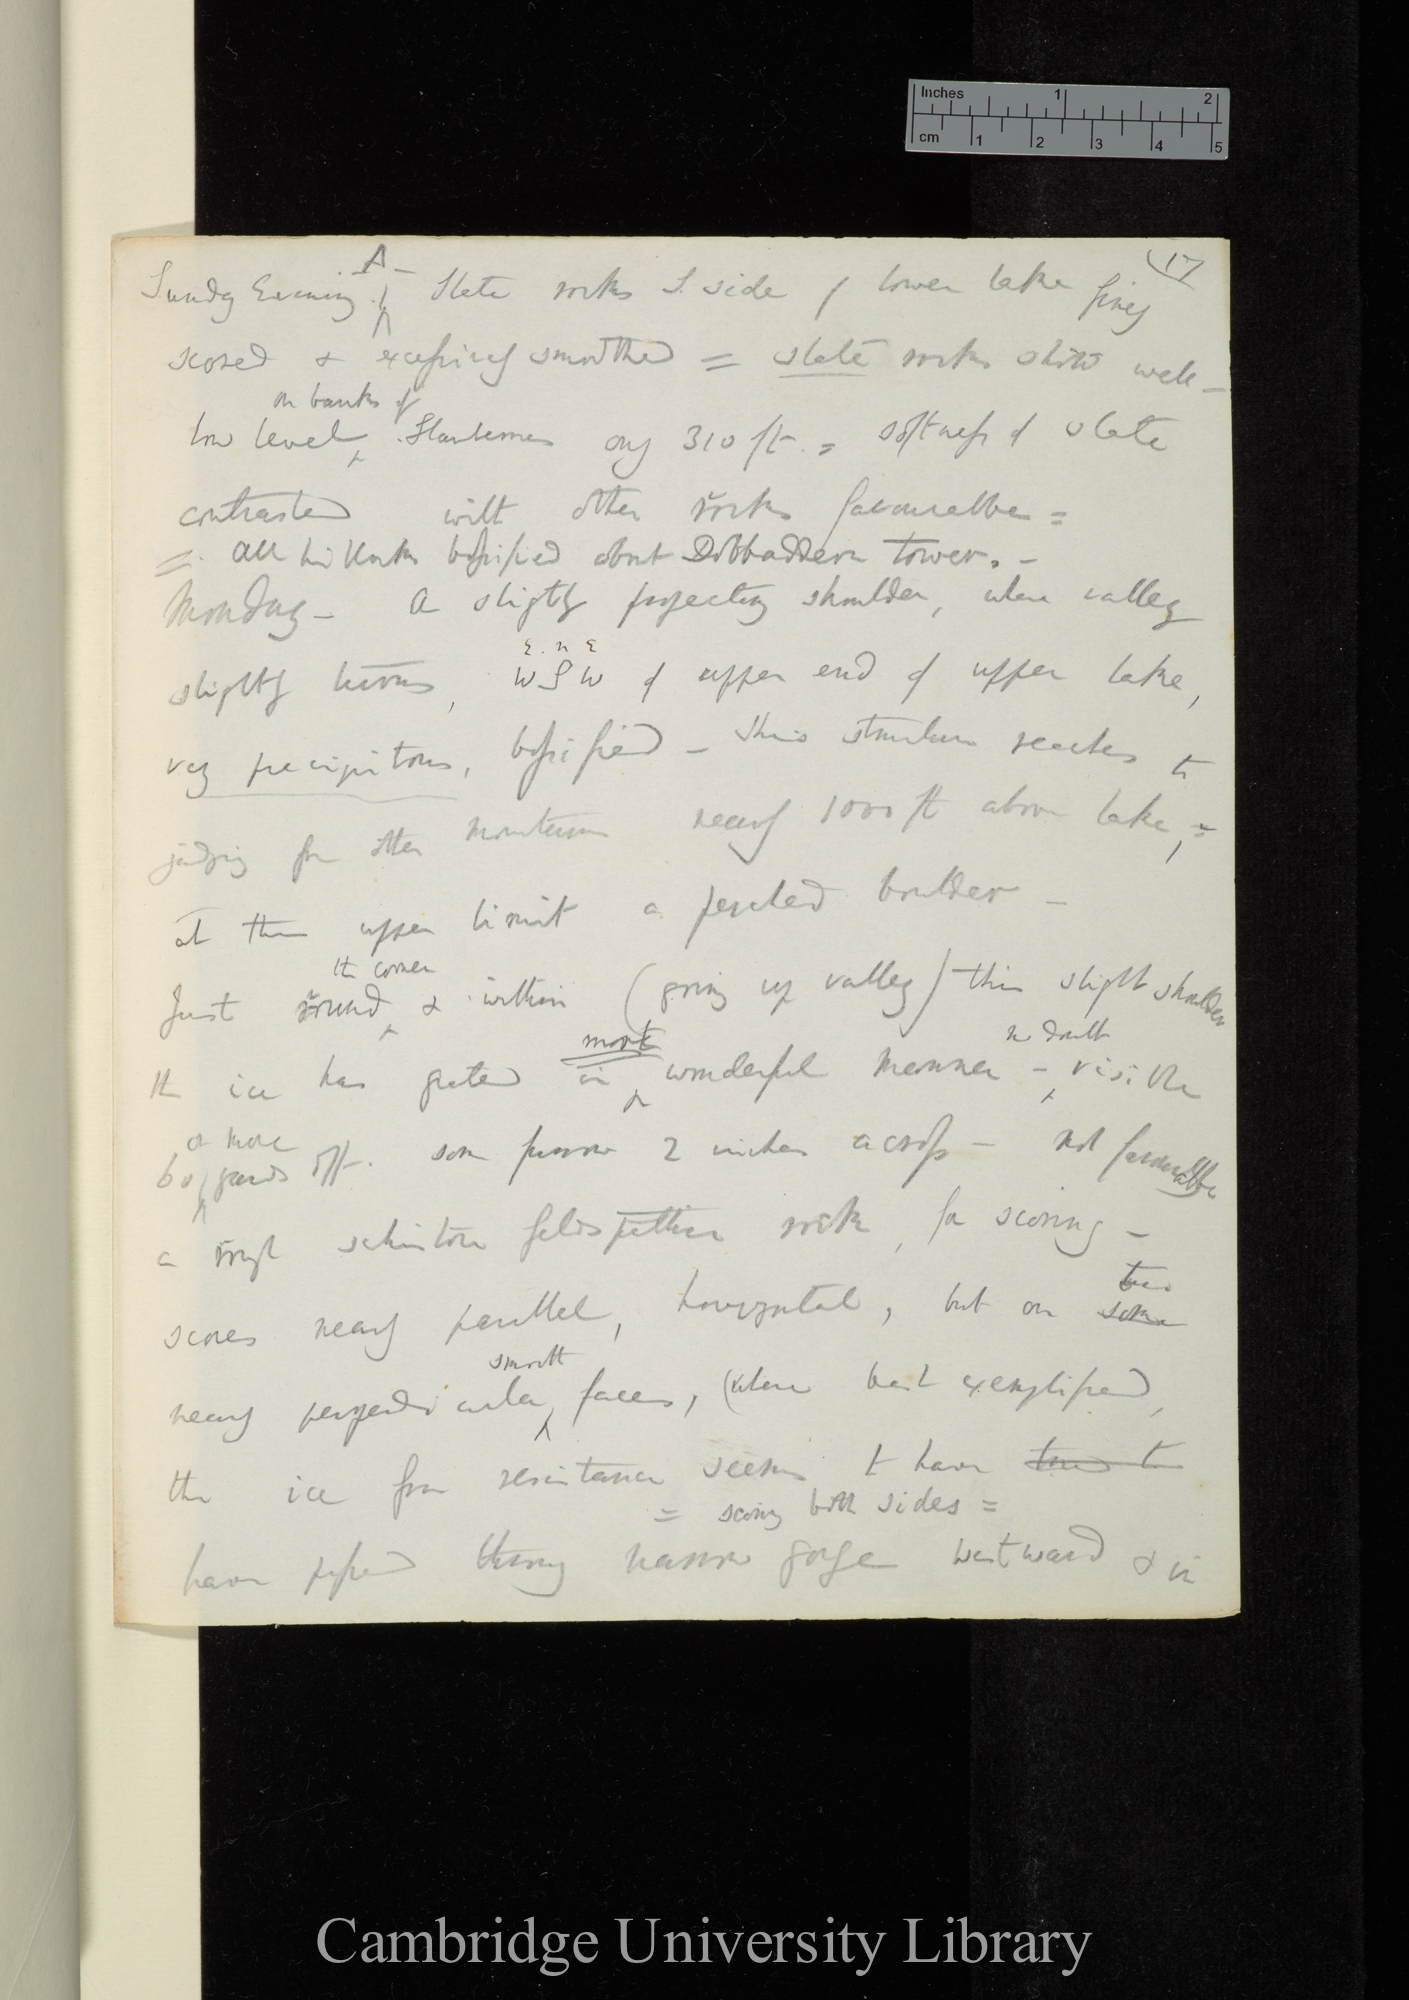 Inches 1 2
cm 1 2 3 4 5
17
A –
Sunday Evening. Slate rocks S. side of lower lake finely
scored & excessively smoothed = slate rocks show well –
on banks of
low level, Llanberis only 310 ft. = softness of slate
contrasted with other rocks favourable =
=. All hillocks bossified about Dolbaddern Tower. –
Monday – A slightly projecting shoulder, where valley
E. N E
slightly turns, W S W of upper end of upper lake,
very precipitous, bossified – this structure reaches to
judging from other mountains nearly 1000 ft above lake, =
at their upper limit a perched boulder –
the corner
Just round & within (going up valley) this slight shoulder
most no doubt
the ice has grated in wonderful manner – visible
or more
60 yards off. some furrows 2 inches across – not favourable
a rough schistose feldspathic rock, for scoring –
two
scores nearly parallel, horizontal, but on some
smooth
nearly perpendicular faces, (where best exemplified,
the ice from resistance seems to have tried to
= scoring both sides =
have passed through narrow gorge westward & in
Cambridge University Library